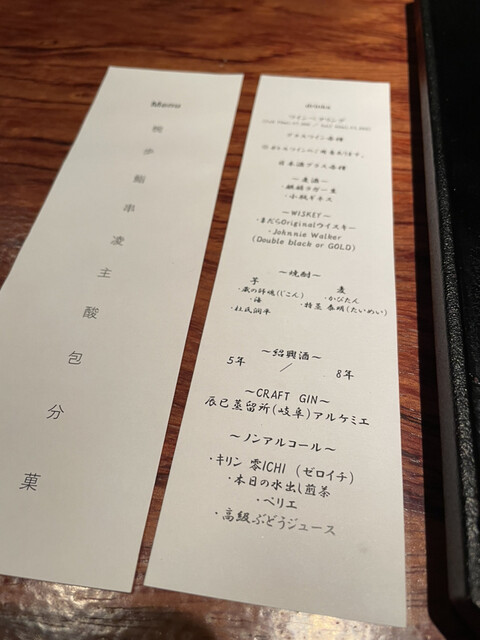 Menu
歩
串
凌
主
酸
包
分
菓
drinks
ワインペアリング
グラスワイン各種
日本酒グラス各種
～麦酒～
・麒麟ラガー生
・小瓶ギネス
～WISKEY～
・まだらOriginalウイスキー
・Johnnie Walker
(Double black or GOLD)
～焼酎～
芋 麦
・蔵の師魂(じこん) ・かびたん
・海 ・特蒸 泰明(たいめい)
・杜氏潤平
～紹興酒～
5年 ／ 8年
～CRAFT GIN～
辰巳蒸留所(岐阜)アルケミエ
～ノンアルコール～
・キリン 零ICHI (ゼロイチ)
・本日の水出し煎茶
・ペリエ
・高級ぶどうジュース